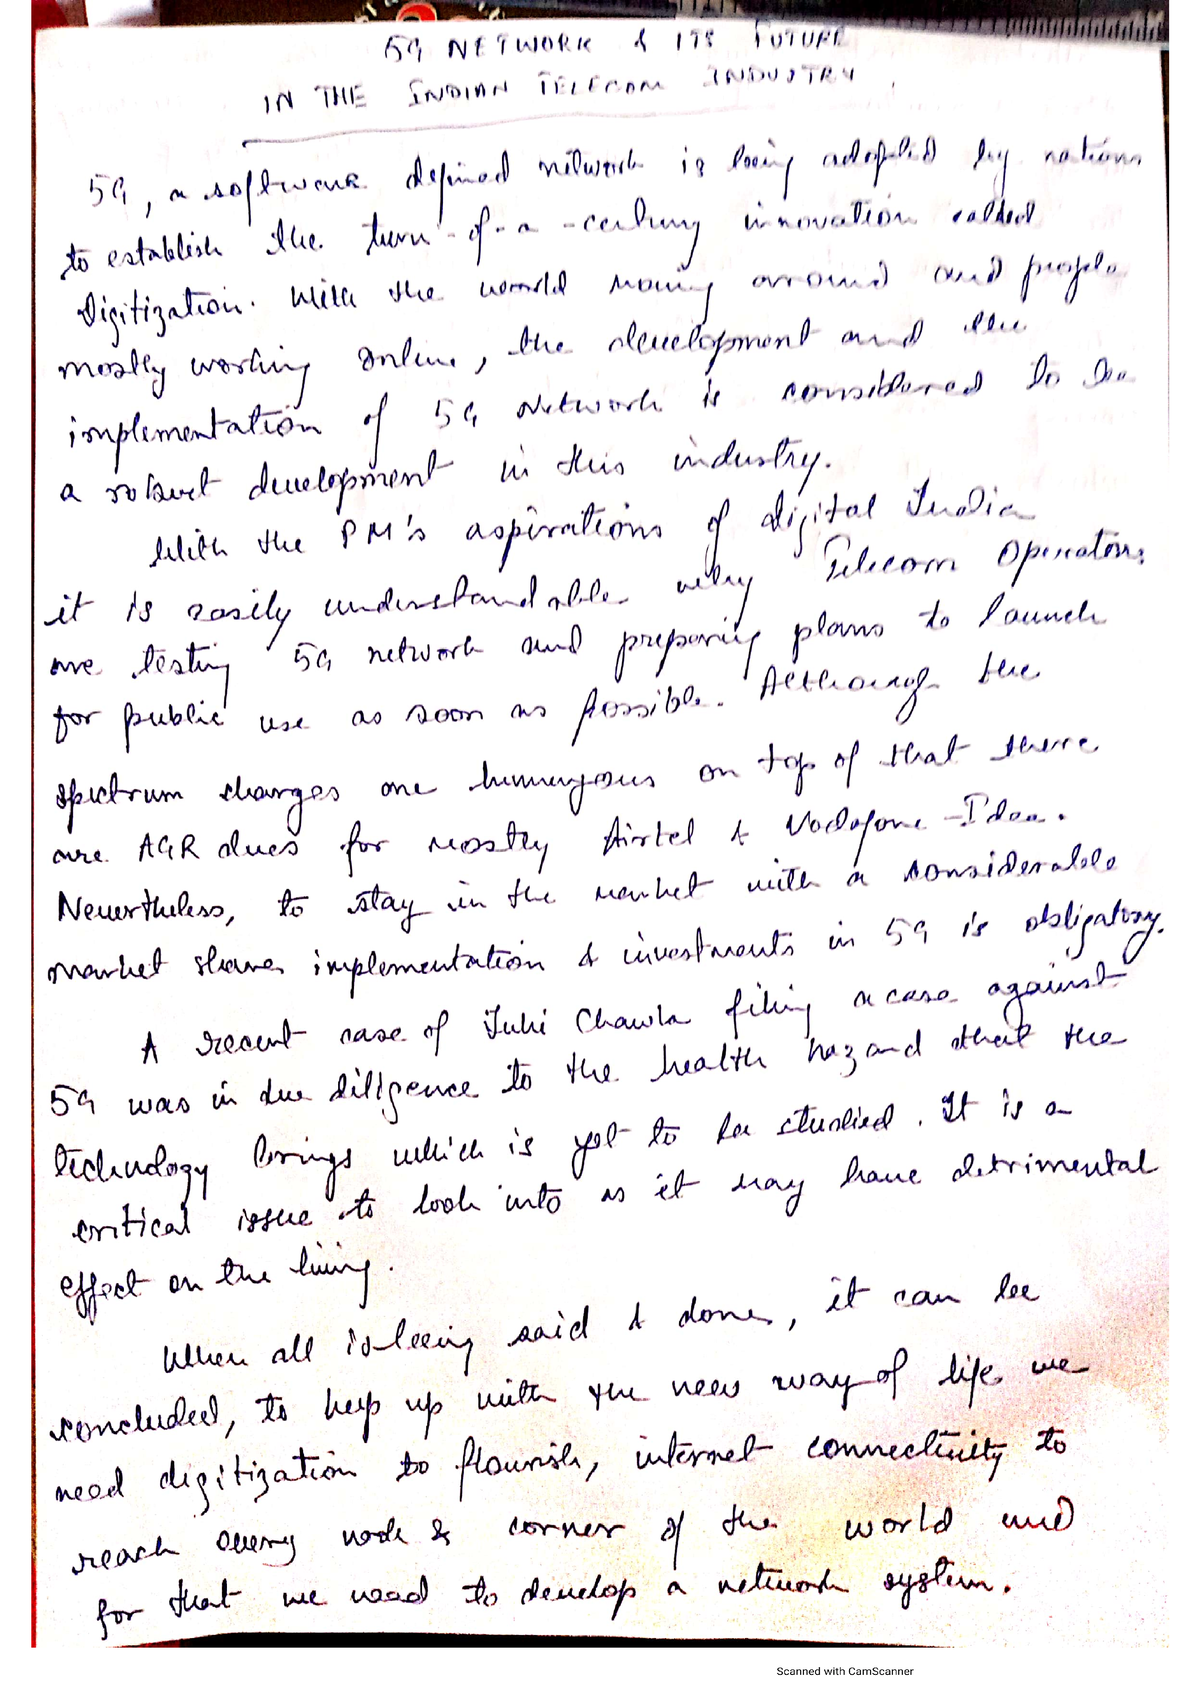 5G NETWORK & ITS FUTURE
IN THE INDIAN TELECOM INDUSTRY.
5G, a software defined network is being adopted by nations
to establish the turn-of-a-century innovation called
Digitization. With the world moving around and people
mostly working online, the development and the
implementation of 5G Network is considered to be
a robust development in this industry.
With the PM's aspirations of digital India
it is easily understandable why Telecom Operators
are testing 5G network and preparing plans to launch
for public use as soon as possible. Although the
spectrum charges are humungous on top of that there
are AGR dues for mostly Airtel & Vodafone-Idea.
Nevertheless, to stay in the market with a considerable
market share implementation & investments in 5G is obligatory.
A recent case of Juhi Chawla filing a case against
5G was in due diligence to the health hazard that the
technology brings which is yet to be studied. It is a
critical issue to look into as it may have detrimental
effect on the living.
When all is being said & done, it can be
concluded, to keep up with the new way of life we
need digitization to flourish, internet connectivity to
reach every nook & corner of the world and
for that we need to develop a network system.
Scanned with CamScanner